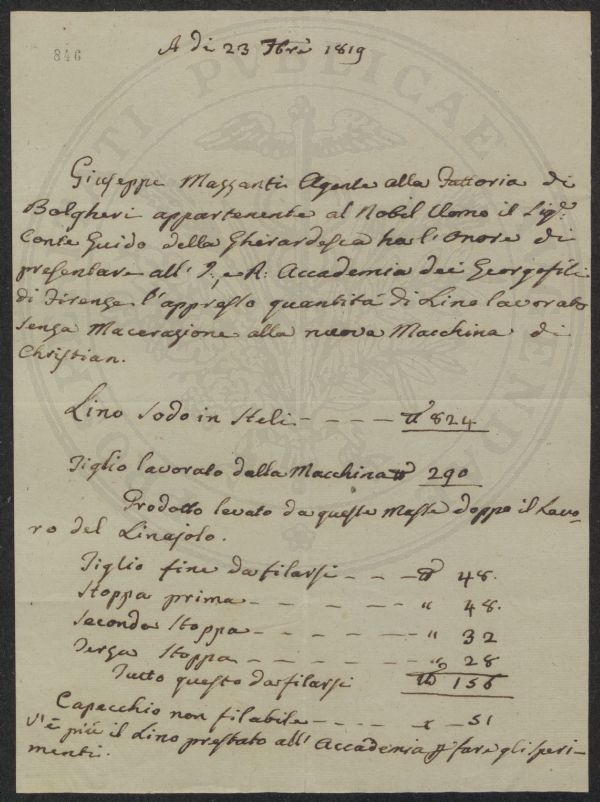 846
A di 23 7bre 1819
Giuseppe Mazzanti Agente alla Fattoria di
Bolgheri appartenente al Nobil Uomo il Sigr:
Conte Guido della Gherardesca ha l'onore di
presentare all' I. e R. Accademia dei Georgofili
di Firenze l'appresso quantità di Lino lavorato
senza Macerazione alla nuova Macchina di
Christian.
Lino Sodo in Steli - - - - ℔ 824
Tiglio lavorato dalla Macchina ℔ 290
Prodotto levato da queste Masse doppo il Lavo-
ro del Linajolo.
Tiglio fine da filarsi - - - ℔ 48.
Stoppa prima - - - - - " 48.
Seconda Stoppa - - - - - " 32
Terza Stoppa - - - - - " 28
Tutto questo da filarsi ℔ 156
Capecchio non filabile - - - - 51
V'è più il Lino prestato all' Accademia p fare gli speri-
menti.
PUBLICAE